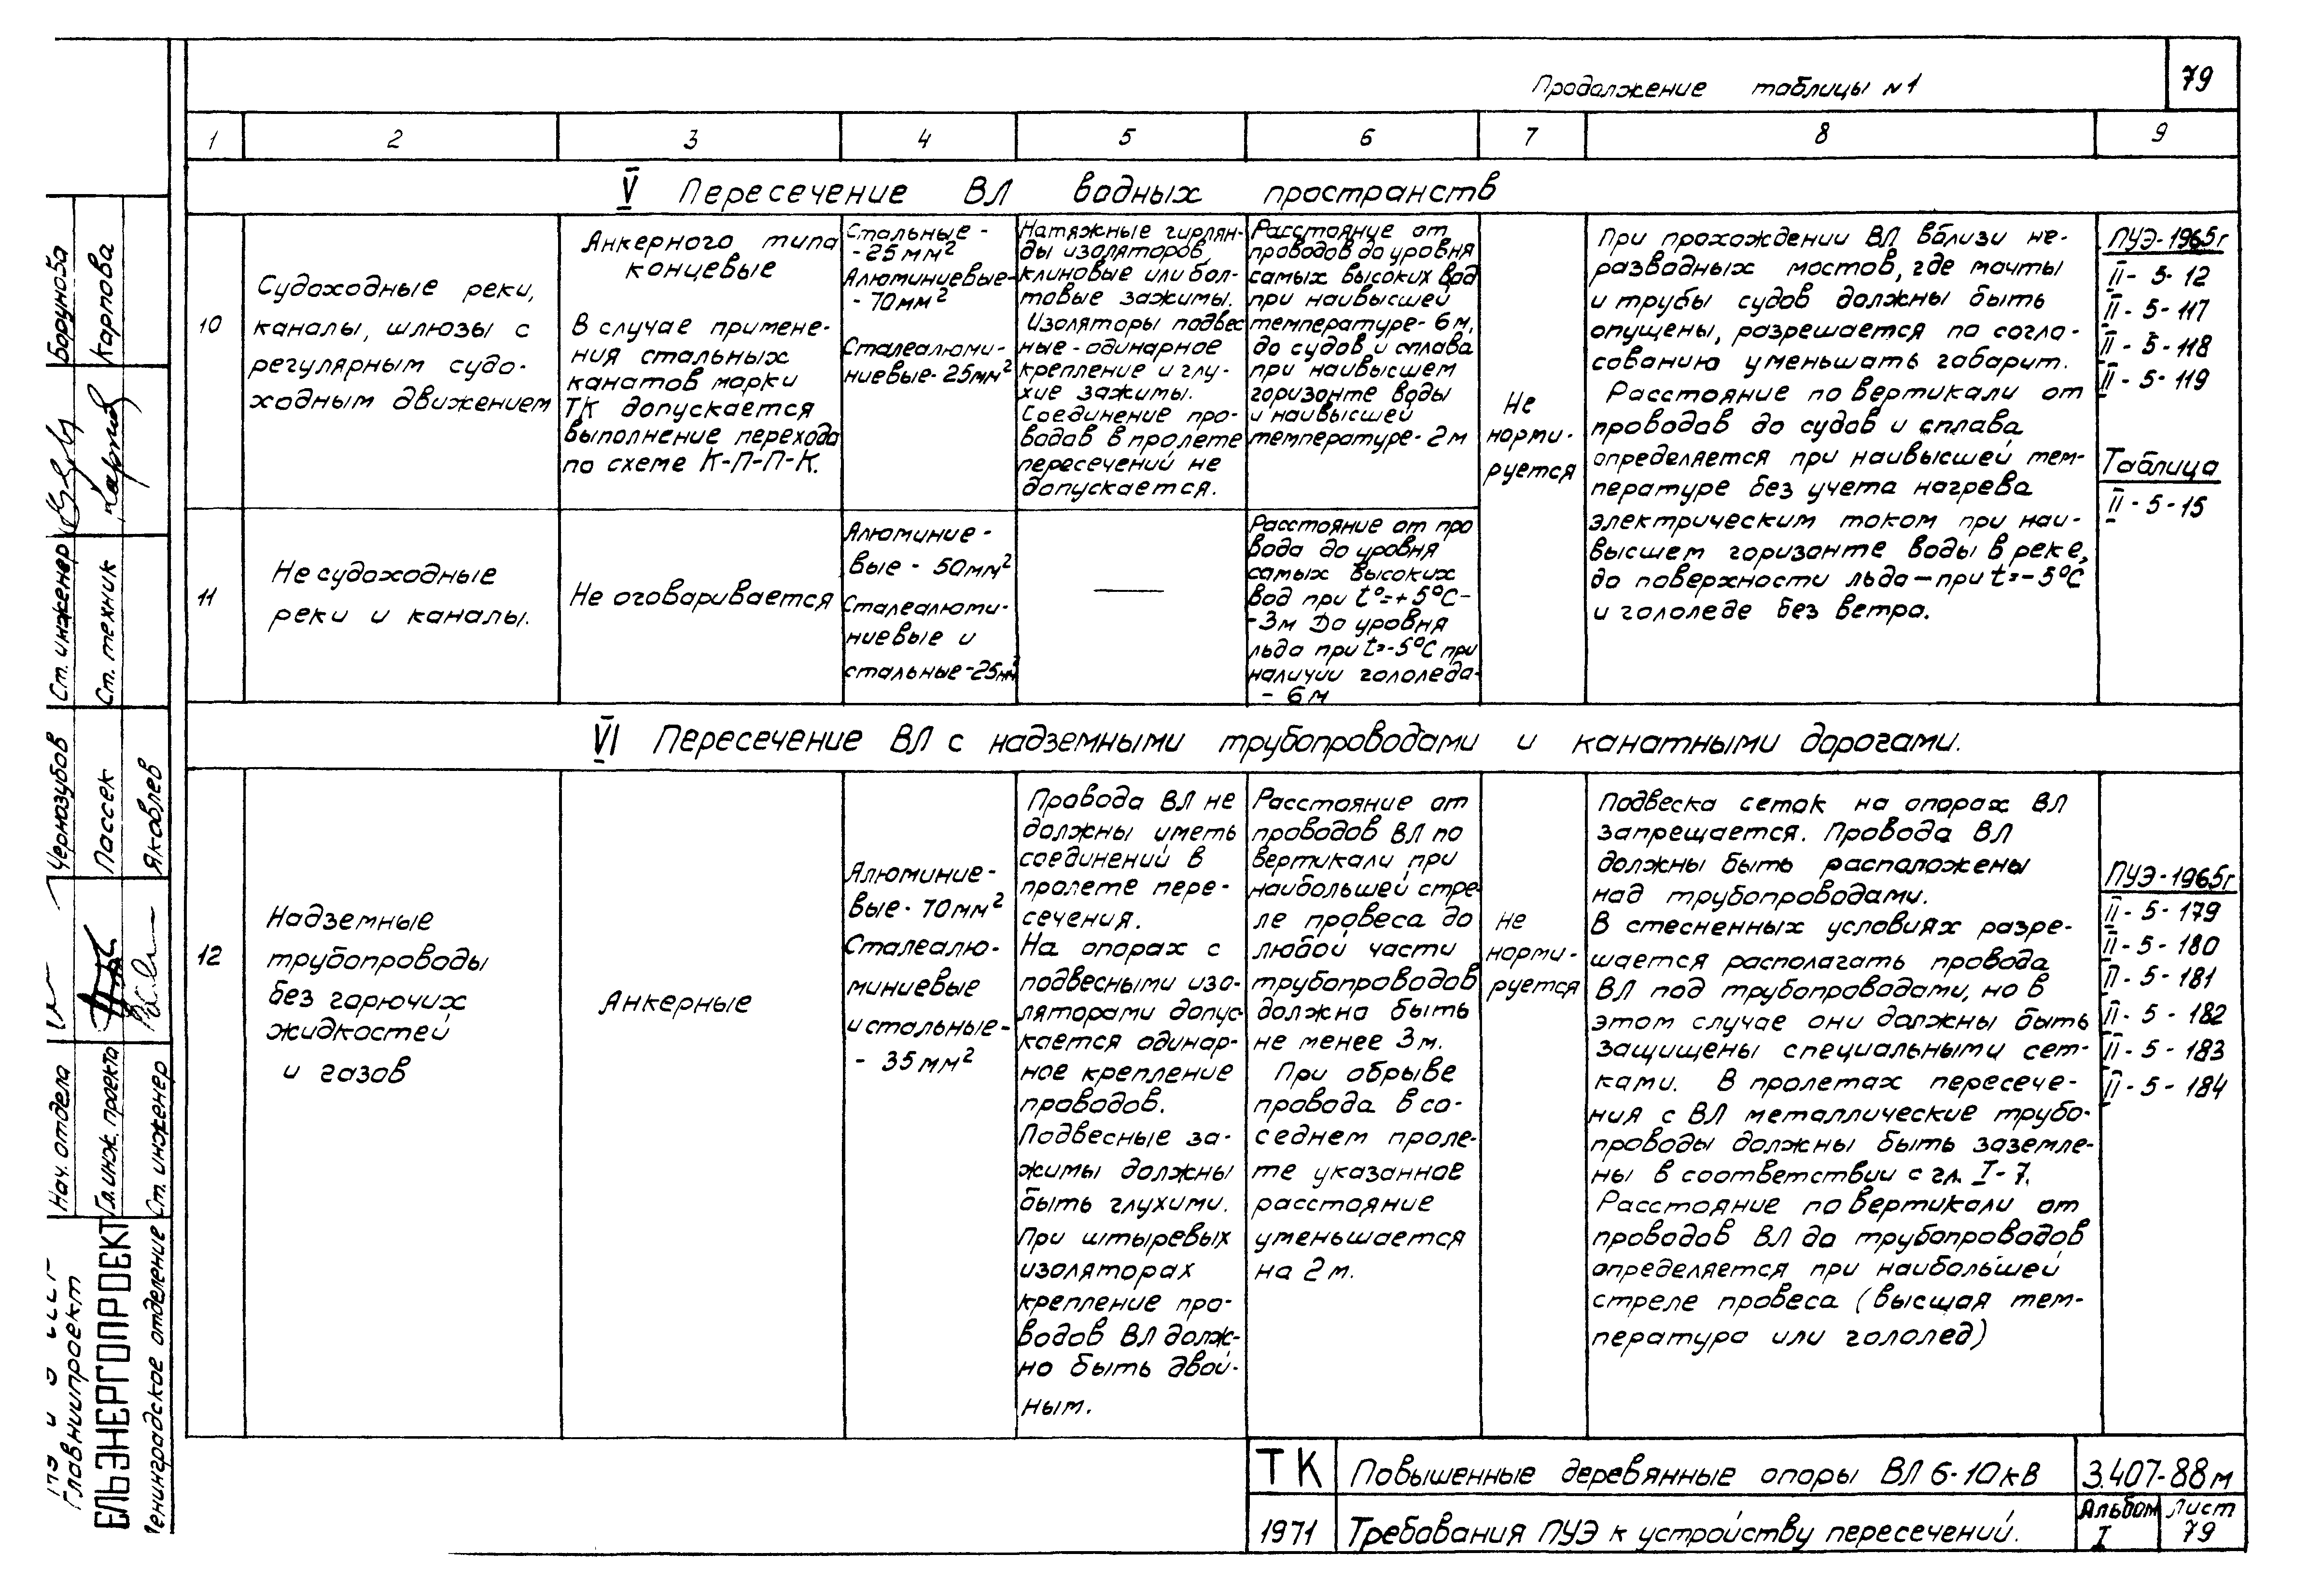 79
Продолжение таблицы №1
1 2 3 4 5 6 7 8 9
V Пересечение ВЛ водных пространств
10
Судоходные реки,
каналы, шлюзы с
регулярным судо-
ходным движением
Анкерного типа
концевые
В случае примене-
ния стальных
канатов марки
ТК допускается
выполнение перехода
по схеме К-П-П-К.
Стальные -
- 25 мм²
Алюминиевые-
- 70 мм²
Сталеалюми-
ниевые- 25мм²
Натяжные гирлян-
ды изоляторов,
клиновые или бол-
товые зажимы.
Изоляторы подвес
ные - одинарное
крепление и глу-
хие зажимы.
Соединение про-
водов в пролете
пересечений не
допускается.
Расстояние от
проводов до уровня
самых высоких вод
при наивысшей
температуре- 6 м,
до судов и сплава
при наивысшем
горизонте воды
и наивысшей
температуре- 2 м
Не
норми-
руется
При прохождении ВЛ вблизи не-
разводных мостов, где мачты
и трубы судов должны быть
опущены, разрешается по согла-
сованию уменьшать габарит.
Расстояние по вертикали от
проводов до судов и сплава
определяется при наивысшей тем-
пературе без учета нагрева
электрическим током при наи-
высшем горизонте воды в реке,
до поверхности льда - при t=-5°С
и гололеде без ветра.
ПУЭ-1965г
II- 5- 12
II- 5- 117
II- 5- 118
II- 5- 119
Таблица
II- 5- 15
11
Не судоходные
реки и каналы.
Не оговаривается
Алюминие -
вые - 50мм²
Сталеалюми-
ниевые и
стальные-25мм²
—
Расстояние от про
вода до уровня
самых высоких
вод при t°=+5°С-
-3м До уровня
льда при t=-5°С при
наличии гололеда-
- 6 м
VI Пересечение ВЛ с надземными трубопроводами и канатными дорогами.
12
Надземные
трубопроводы
без горючих
жидкостей
и газов
Анкерные
Алюминие-
вые- 70мм²
Сталеалю-
миниевые
и стальные-
- 35 мм²
Провода ВЛ не
должны иметь
соединений в
пролете пере-
сечения.
На опорах с
подвесными изо-
ляторами допус-
кается одинар-
ное крепление
проводов.
Подвесные за-
жимы должны
быть глухими.
При штыревых
изоляторах
крепление про-
водов ВЛ долж-
но быть двой-
ным.
Расстояние от
проводов ВЛ по
вертикали при
наибольшей стре-
ле провеса до
любой части
трубопроводов
должно быть
не менее 3м.
При обрыве
провода в со-
седнем проле-
те указанное
расстояние
уменьшается
на 2 м.
не
норми-
руется
Подвеска сеток на опорах ВЛ
запрещается. Провода ВЛ
должны быть расположены
над трубопроводами.
В стесненных условиях разре-
шается располагать провода
ВЛ под трубопроводами, но в
этом случае они должны быть
защищены специальными сет-
ками. В пролетах пересече-
ния с ВЛ металлические трубо-
проводы должны быть заземле-
ны в соответствии с гл. I-7.
Расстояние по вертикали от
проводов ВЛ до трубопроводов
определяется при наибольшей
стреле провеса (высшая тем-
пература или гололед)
ПУЭ-1965г
II- 5- 179
II- 5- 180
II- 5- 181
II- 5 - 182
II- 5 - 183
II- 5 - 184
ТК
Повышенные деревянные опоры ВЛ 6-10кВ
3.407-88м
1971
Требования ПУЭ к устройству пересечений.
Альбом
I
Лист
79
Главниипроект
ЕЛЬЭНЕРГОПРОЕКТ
Ленинградское отделение
Нач. отдела
Чернозубов
Ст. инженер
Гл. инж. проекта
Пассек
Ст. техник
Карпова
Ст. инженер
Яковлев